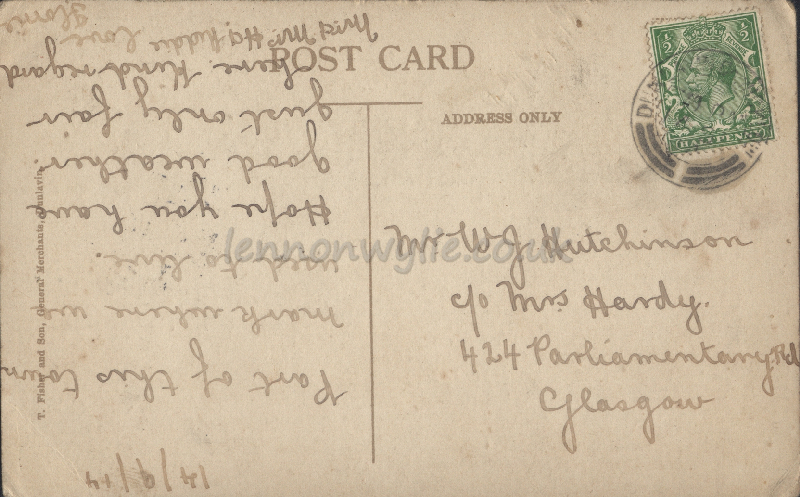 POST CARD
ADDRESS ONLY
½ ½
HALFPENNY
Mr W J Hutchinson
c/o Mrs Hardy.
424 Parliamentary Rd
Glasgow
14/9/14
Part of this town
mark where we
used to live.
Hope you have
good weather
just only fair
here Kind regard
love
T. Fisher and Son, General Merchants, Dunlavin.
lennonwylie.co.uk